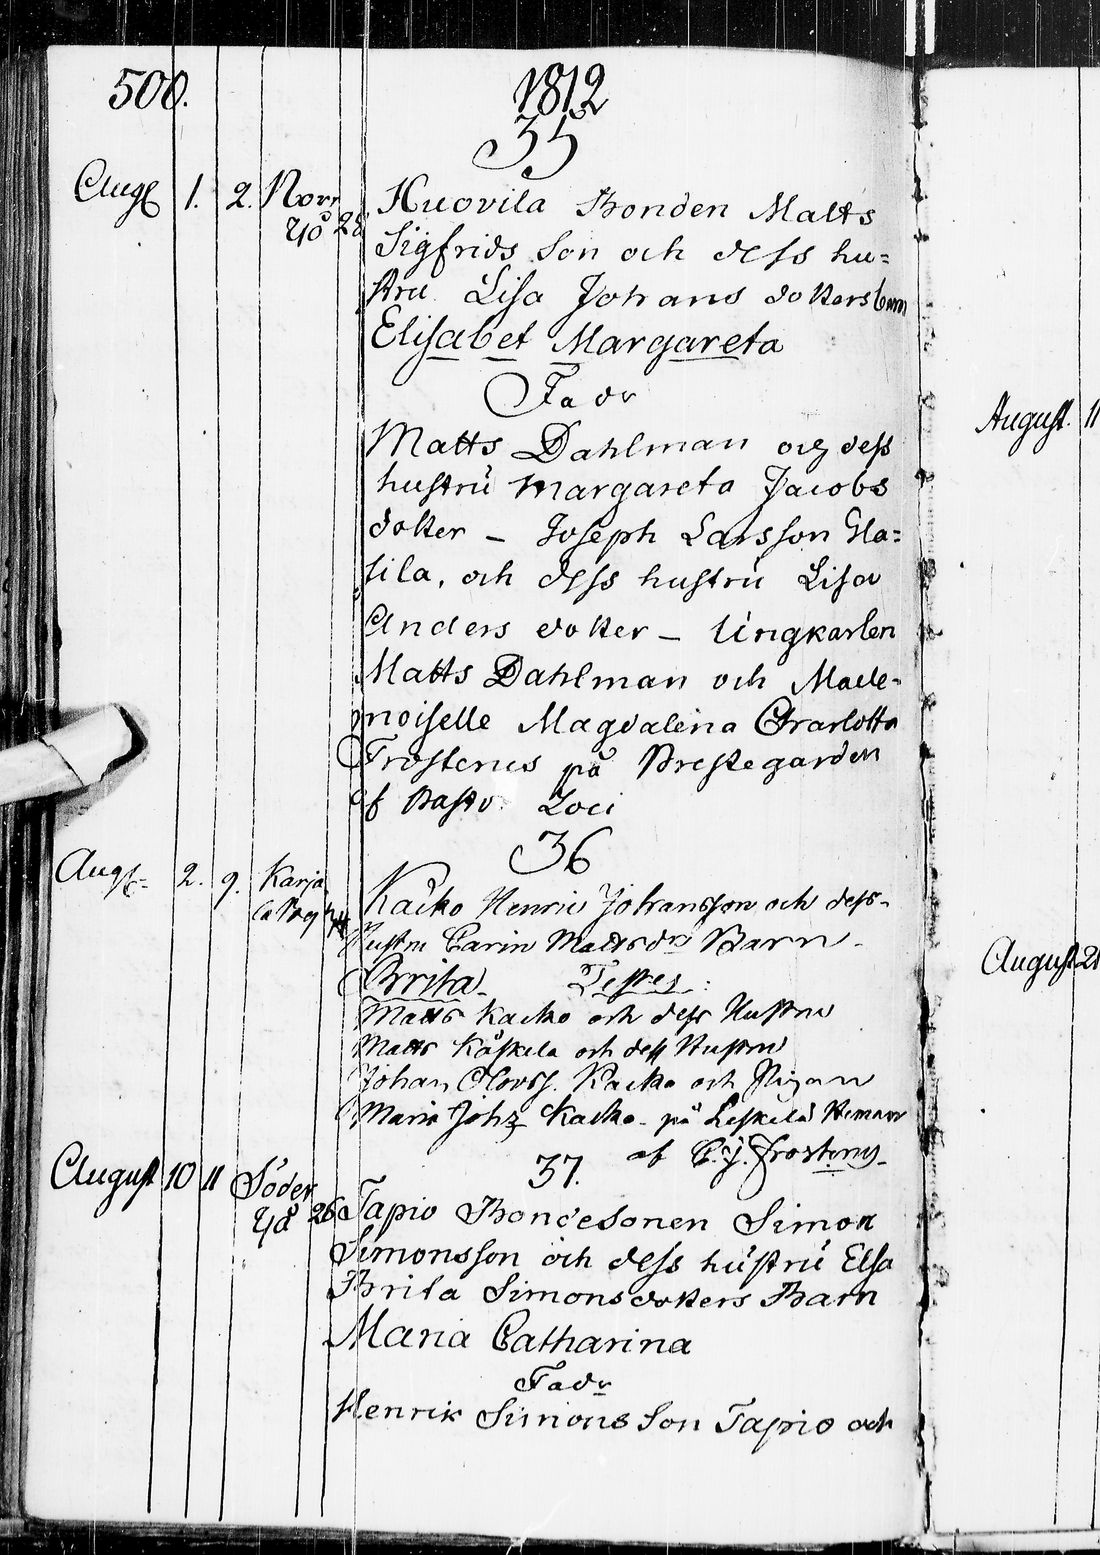 500.
1812
35
Aug 1. 2. Norr Huovila Bonden Matts
yå 28 Sigfrids Son och dess hu=
stru Lisa Johans dotters barn
Elisabet Margareta
Fadr
Matts Dahlman och dess
hustru Margareta Jacobs
dotter – Joseph Larsson Gla=
sila, och dess hustru Lisa
Anders dotter – Ungkarlen
Matts Dahlman och Made-
moiselle Magdalena Charlotta
Frosterus på Prestegården
af Pastor Loci
36
Aug. 2. 9. Karja Kacko Henric Johansson och dess
hustru Carin Mattsdr Barn
Brita Testes:
Matts Kacko och dess Hustru
Matts Käskela och dess Hustru
Johan Olovss. Kacko och Pigan
Maria Joh Kacko på Leskelä Heman
af C. J. Frosterus
37.
August 10 11 Söder
yå 26 Tapio Bondesonen Simon
Simonsson och dess hustru Elsa
Brita Simonsdotters Barn
Maria Catharina
Fadr
Henrik Simons Son Tapio och
August. 11
August 21